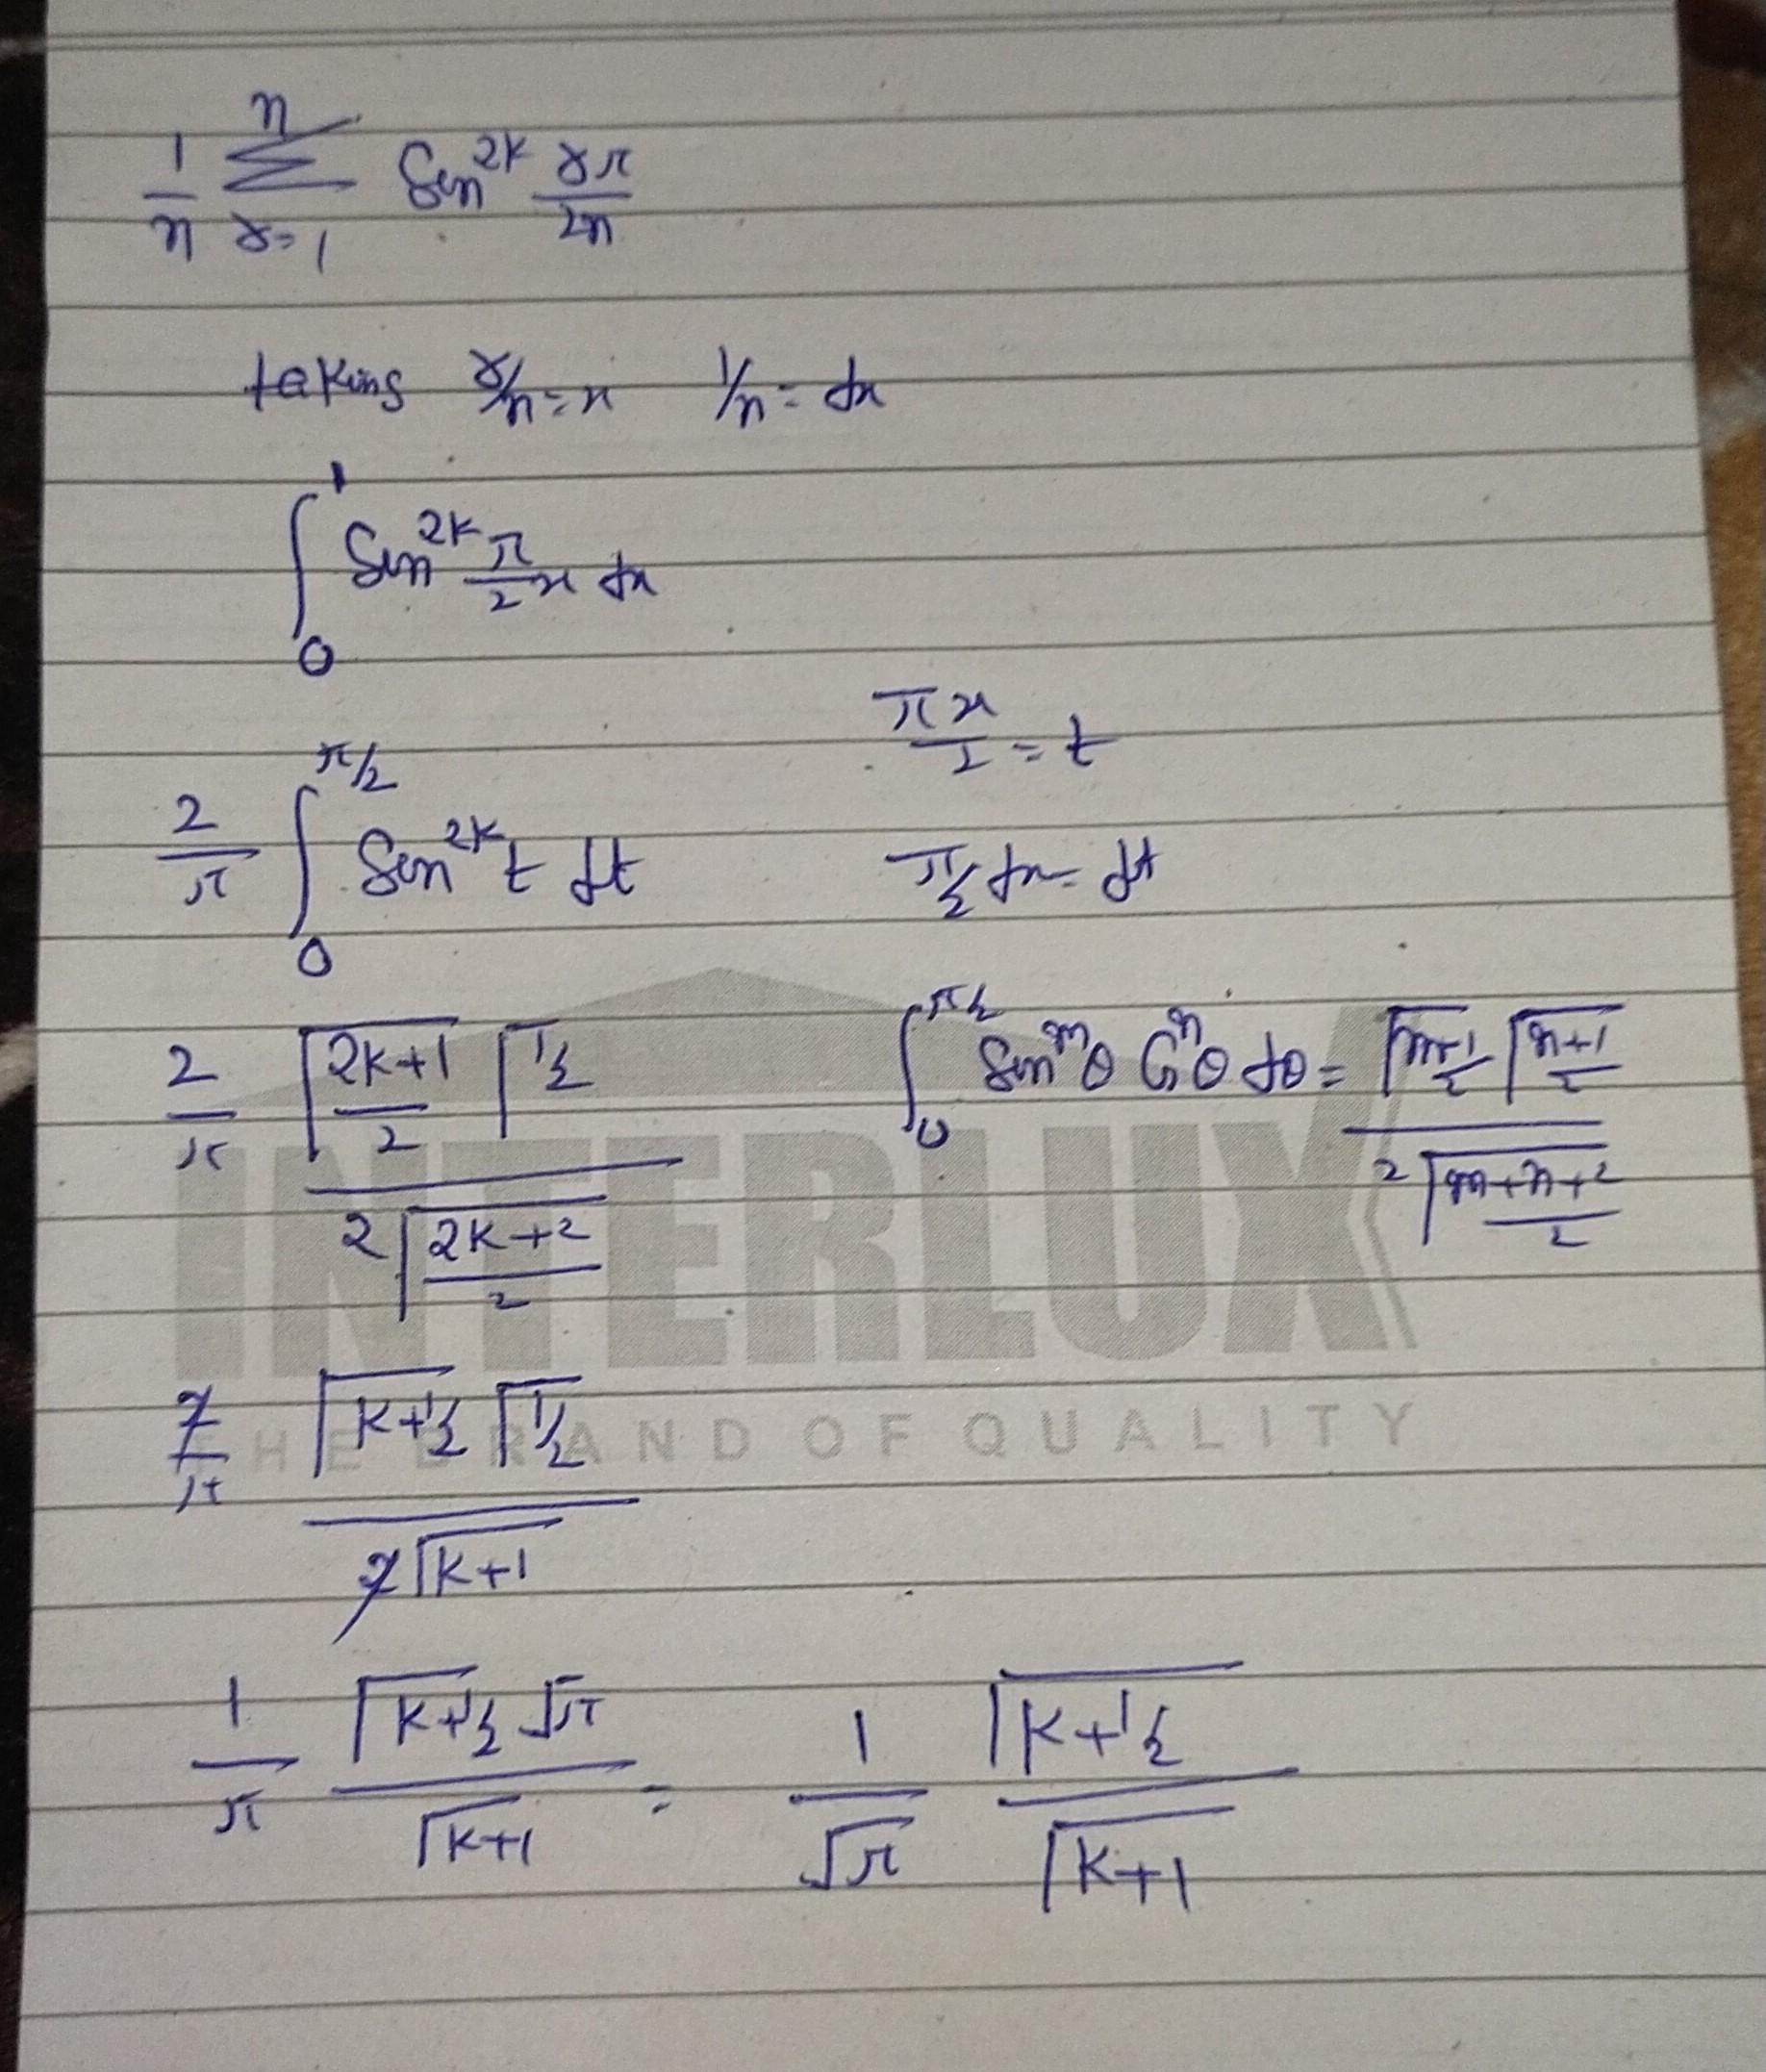 1/n ∑_{r=1}^{n} Sin^{2k} rπ/2n
taking r/n = x 1/n = dx
∫_0^1 Sin^{2k} π/2 x dx
πx/2 = t
2/π ∫_0^{π/2} Sin^{2k} t dt π/2 dx = dt
2/π Γ(2k+1)/2 Γ1/2 / 2Γ(2k+2)/2 ∫_0^{π/2} Sin^m θ Cos^n θ dθ = Γ(m+1)/2 Γ(n+1)/2 / 2Γ(m+n+2)/2
INTERLUX
2/π Γk+1/2 Γ1/2 / 2Γk+1
THE BRAND OF QUALITY
1/π Γk+1/2 √π / Γk+1 = 1/√π Γk+1/2 / Γk+1